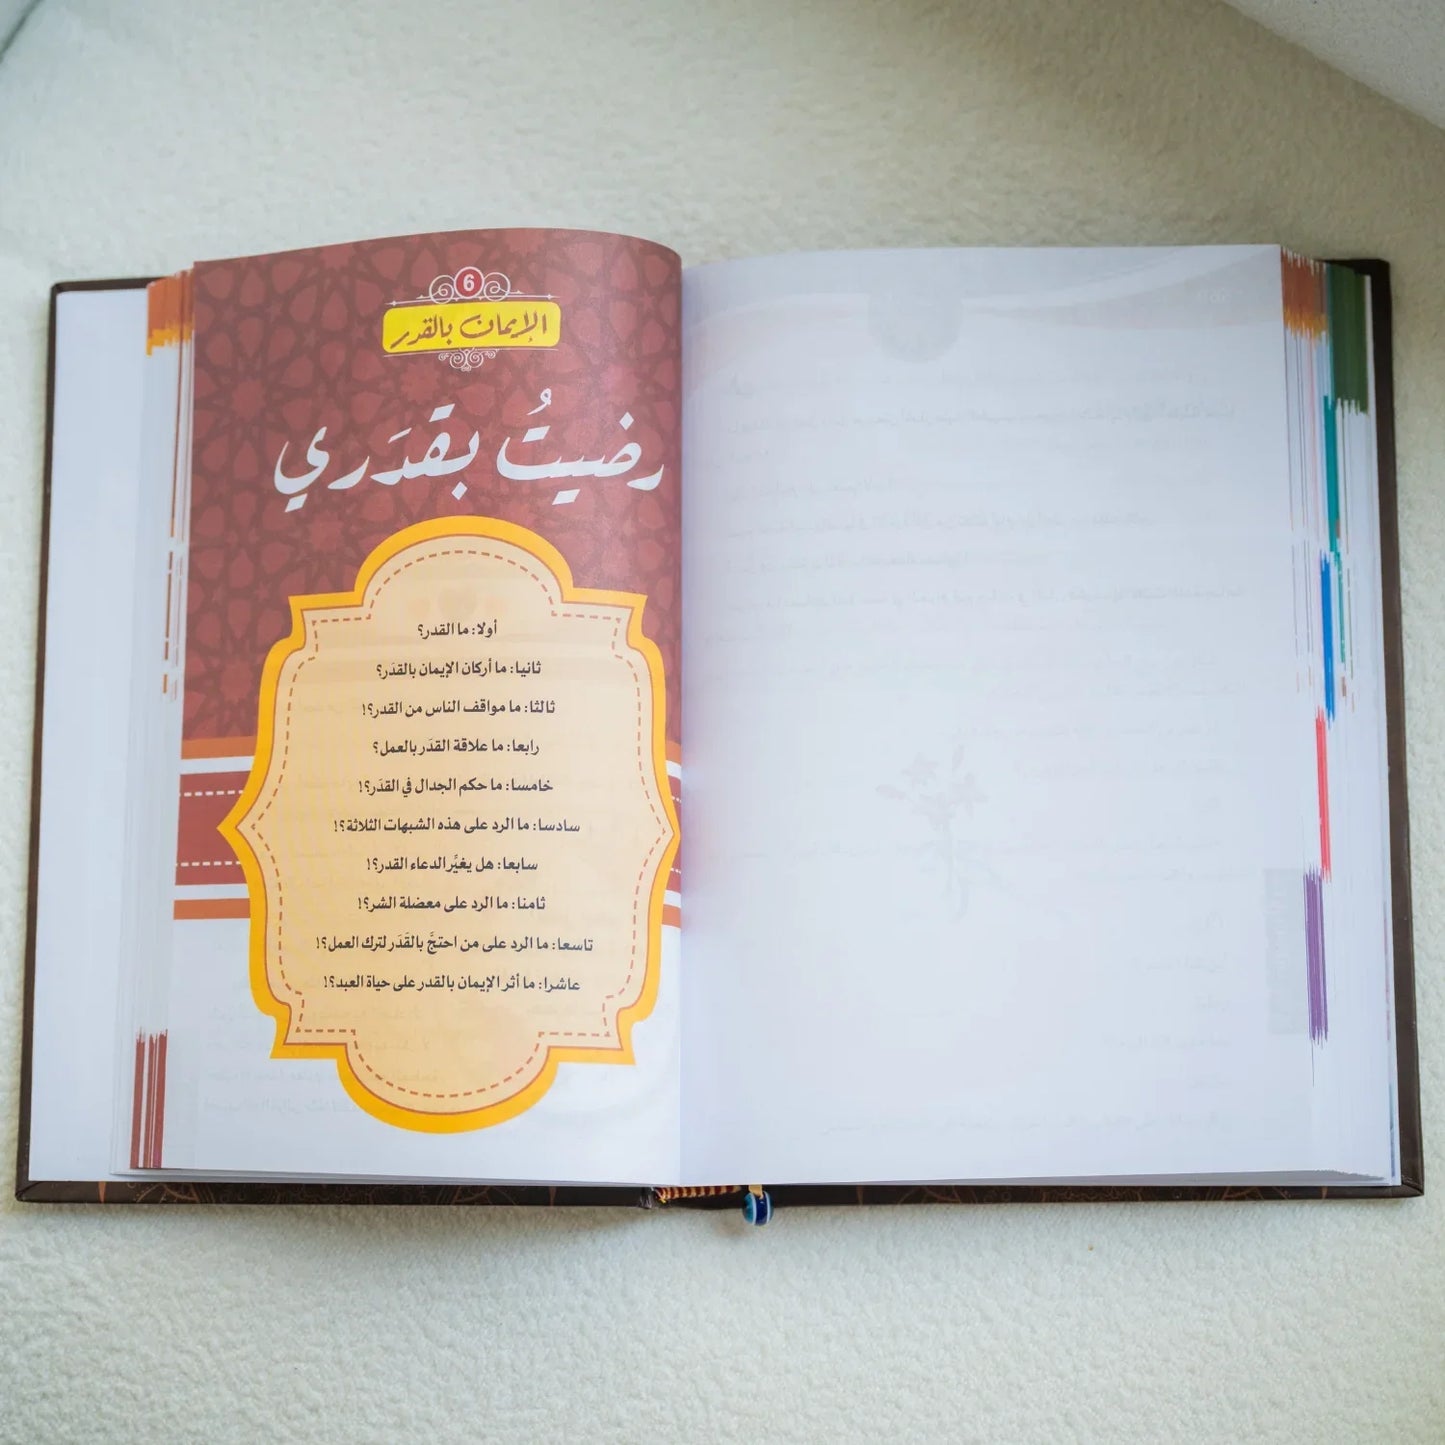 6
الإيمان بالقدر
رضيتُ بقدَري
أولا: ما القدر؟
ثانيا: ما أركان الإيمان بالقدَر؟
ثالثا: ما مواقف الناس من القدر؟!
رابعا: ما علاقة القدَر بالعمل؟
خامسا: ما حكم الجدال في القدَر؟!
سادسا: ما الرد على هذه الشبهات الثلاثة؟!
سابعا: هل يغيِّر الدعاء القدر؟!
ثامنا: ما الرد على معضلة الشر؟!
تاسعا: ما الرد على من احتجَّ بالقَدَر لترك العمل؟!
عاشرا: ما أثر الإيمان بالقدر على حياة العبد؟!